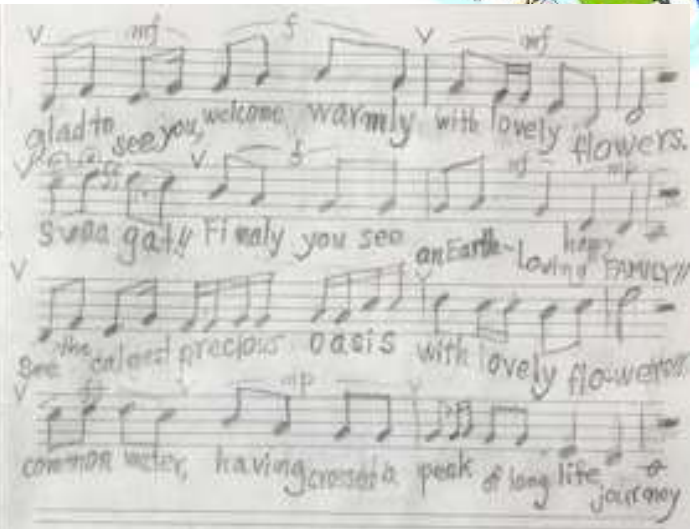 mf f mf
glad to see you, welcome warmly with lovely flowers.
ff f mf mp
gat!! Finaly you see an Earth-Loving happy FAMILY!!
See the calmest precious oasis with lovely flowers!!
ff mp
common water, having crossed a peak of long life journey